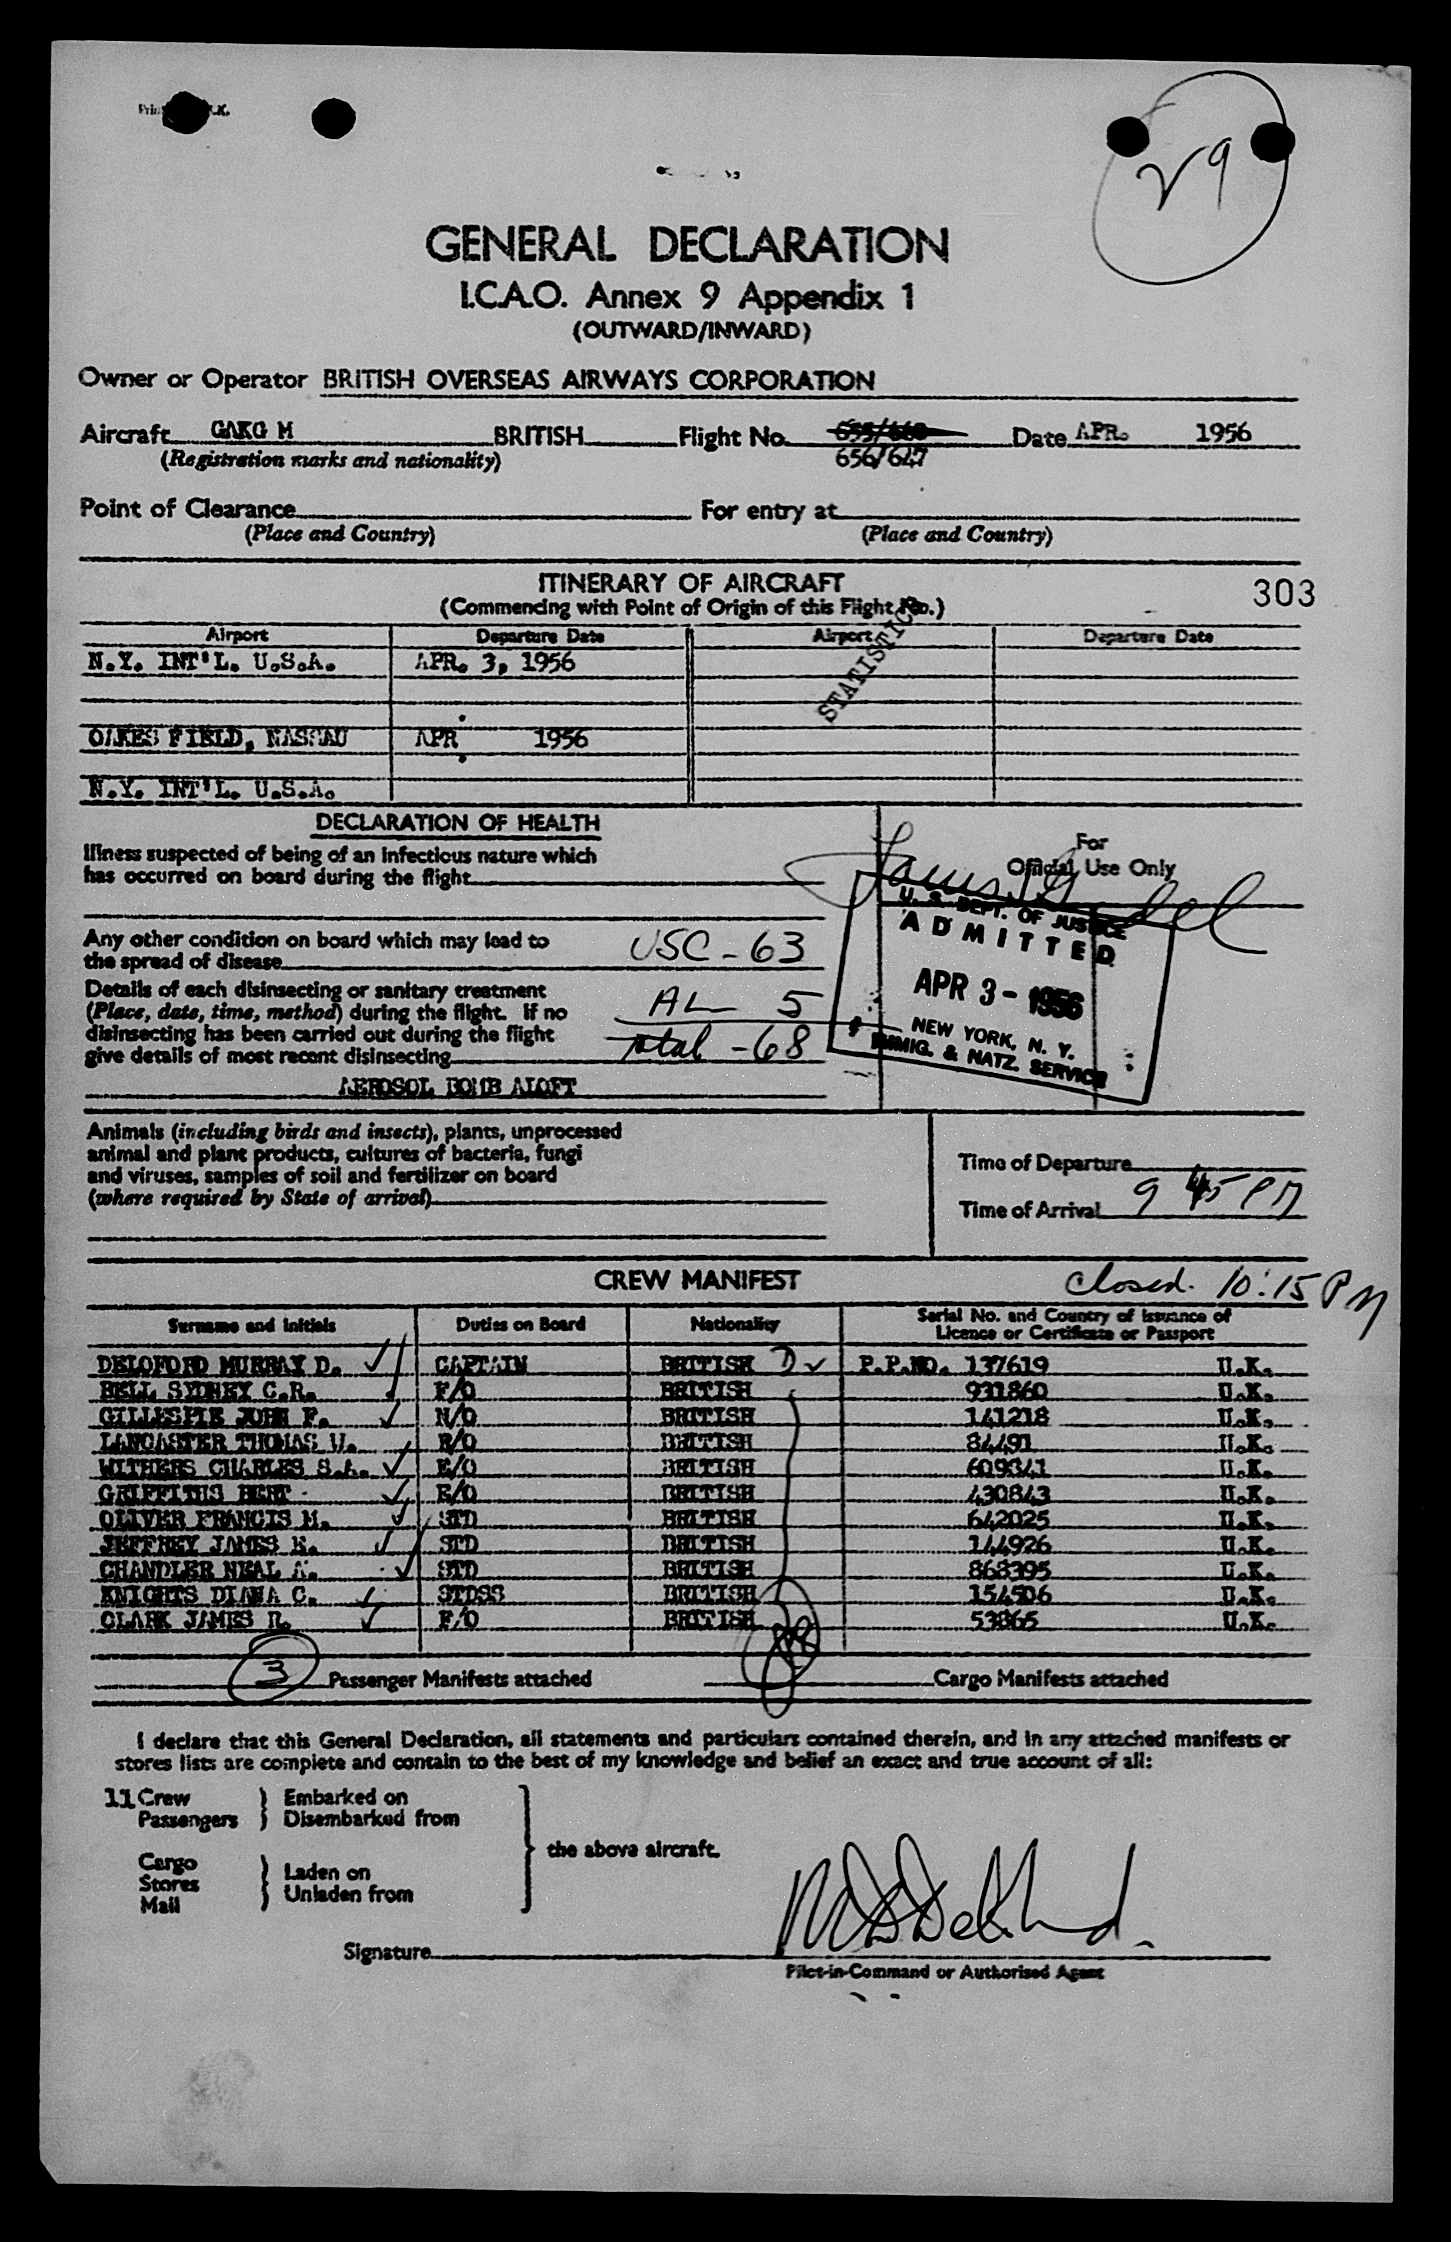 29
GENERAL DECLARATION
I.C.A.O. Annex 9 Appendix 1
(OUTWARD/INWARD)
Owner or Operator BRITISH OVERSEAS AIRWAYS CORPORATION
Aircraft GAKG M BRITISH Flight No. Date APR. 1956
(Registration marks and nationality) 656/647
Point of Clearance For entry at
(Place and Country) (Place and Country)
ITINERARY OF AIRCRAFT 303
(Commencing with Point of Origin of this Flight No.)
STATISTICS
Airport Departure Date Airport Departure Date
N.Y. INT'L. U.S.A. APR. 3, 1956
OAKES FIELD, NASSAU APR 1956
N.Y. INT'L. U.S.A.
DECLARATION OF HEALTH
For
Official Use Only
Illness suspected of being of an infectious nature which
has occurred on board during the flight
Any other condition on board which may lead to
the spread of disease
USC - 63
Details of each disinsecting or sanitary treatment
(Place, date, time, method) during the flight. If no
disinsecting has been carried out during the flight
give details of most recent disinsecting
AL 5
Total - 68
AEROSOL BOMB ALOFT
U. S. DEPT. OF JUSTICE
ADMITTED
APR 3 - 1956
NEW YORK, N. Y.
IMMIG. & NATZ. SERVICE
Animals (including birds and insects), plants, unprocessed
animal and plant products, cultures of bacteria, fungi
and viruses, samples of soil and fertilizer on board
(where required by State of arrival)
Time of Departure
Time of Arrival 9 45 PM
CREW MANIFEST closed. 10:15 PM
Surname and Initials Duties on Board Nationality Serial No. and Country of Issuance of
Licence or Certificate or Passport
DELOFORD MURRAY D. CAPTAIN BRITISH D P.P.NO. 137619 U.K.
BELL SYDNEY C.R. F/O BRITISH 931860 U.K.
GILLESPIE JOHN F. N/O BRITISH 141218 U.K.
LANCASTER THOMAS W. R/O BRITISH 84491 U.K.
WITHERS CHARLES S.A. E/O BRITISH 609341 U.K.
GRIFFITHS BERT E/O BRITISH 430843 U.K.
OLIVER FRANCIS M. STD BRITISH 642025 U.K.
JEFFREY JAMES K. STD BRITISH 144926 U.K.
CHANDLER NEAL A. STD BRITISH 868395 U.K.
KNIGHTS DIANA C. STDSS BRITISH 154506 U.K.
CLARK JAMES R. F/O BRITISH 53865 U.K.
3 Passenger Manifests attached Cargo Manifests attached
I declare that this General Declaration, all statements and particulars contained therein, and in any attached manifests or
stores lists are complete and contain to the best of my knowledge and belief an exact and true account of all:
11 Crew Embarked on
Passengers Disembarked from
the above aircraft.
Cargo
Stores Laden on
Mail Unladen from
Signature
Pilot-in-Command or Authorised Agent